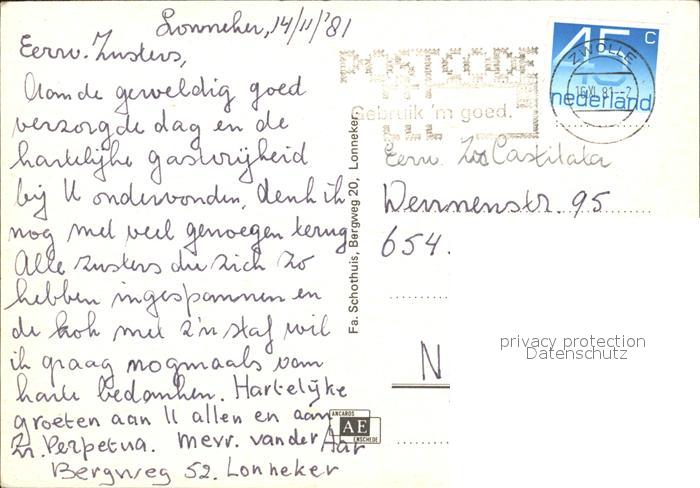 Lonneker, 14/11/'81
Eerw. Zusters,
Aan de geweldig goed
verzorgde dag en de
hartelijke gastvrijheid
bij U ondervonden, denk ik
nog met veel genoegen terug
Alle zusters die zich zo
hebben ingespannen en
de kok met z'n staf wil
ik graag nogmaals van
harte bedanken. Hartelijke
groeten aan U allen en aan
Zr. Perpetua. Mevr. van der Aar
Bergweg 52. Lonneker
Fa. Schothuis, Bergweg 20, Lonneker
ANCAROS
AE
ENSCHEDE
POSTCODE
Gebruik 'm goed.
45 c
nederland
ZWOLLE
16 XI 81
Eerw. Zr. Castilata
Dennenstr. 95
654.
N
privacy protection
Datenschutz